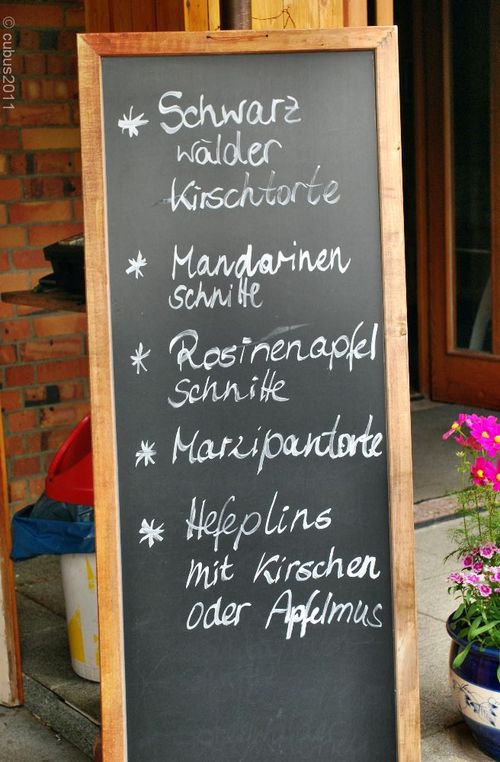 © cubus2011
* Schwarz
wälder
Kirschtorte
* Mandarinen
schnitte
* Rosinenapfel
schnitte
* Marzipantorte
* Hefeplins
mit Kirschen
oder Apfelmus